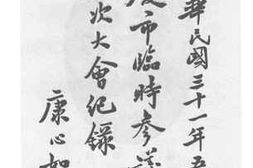 華民國三十一年五
市臨時參議
次大會紀錄
康心如